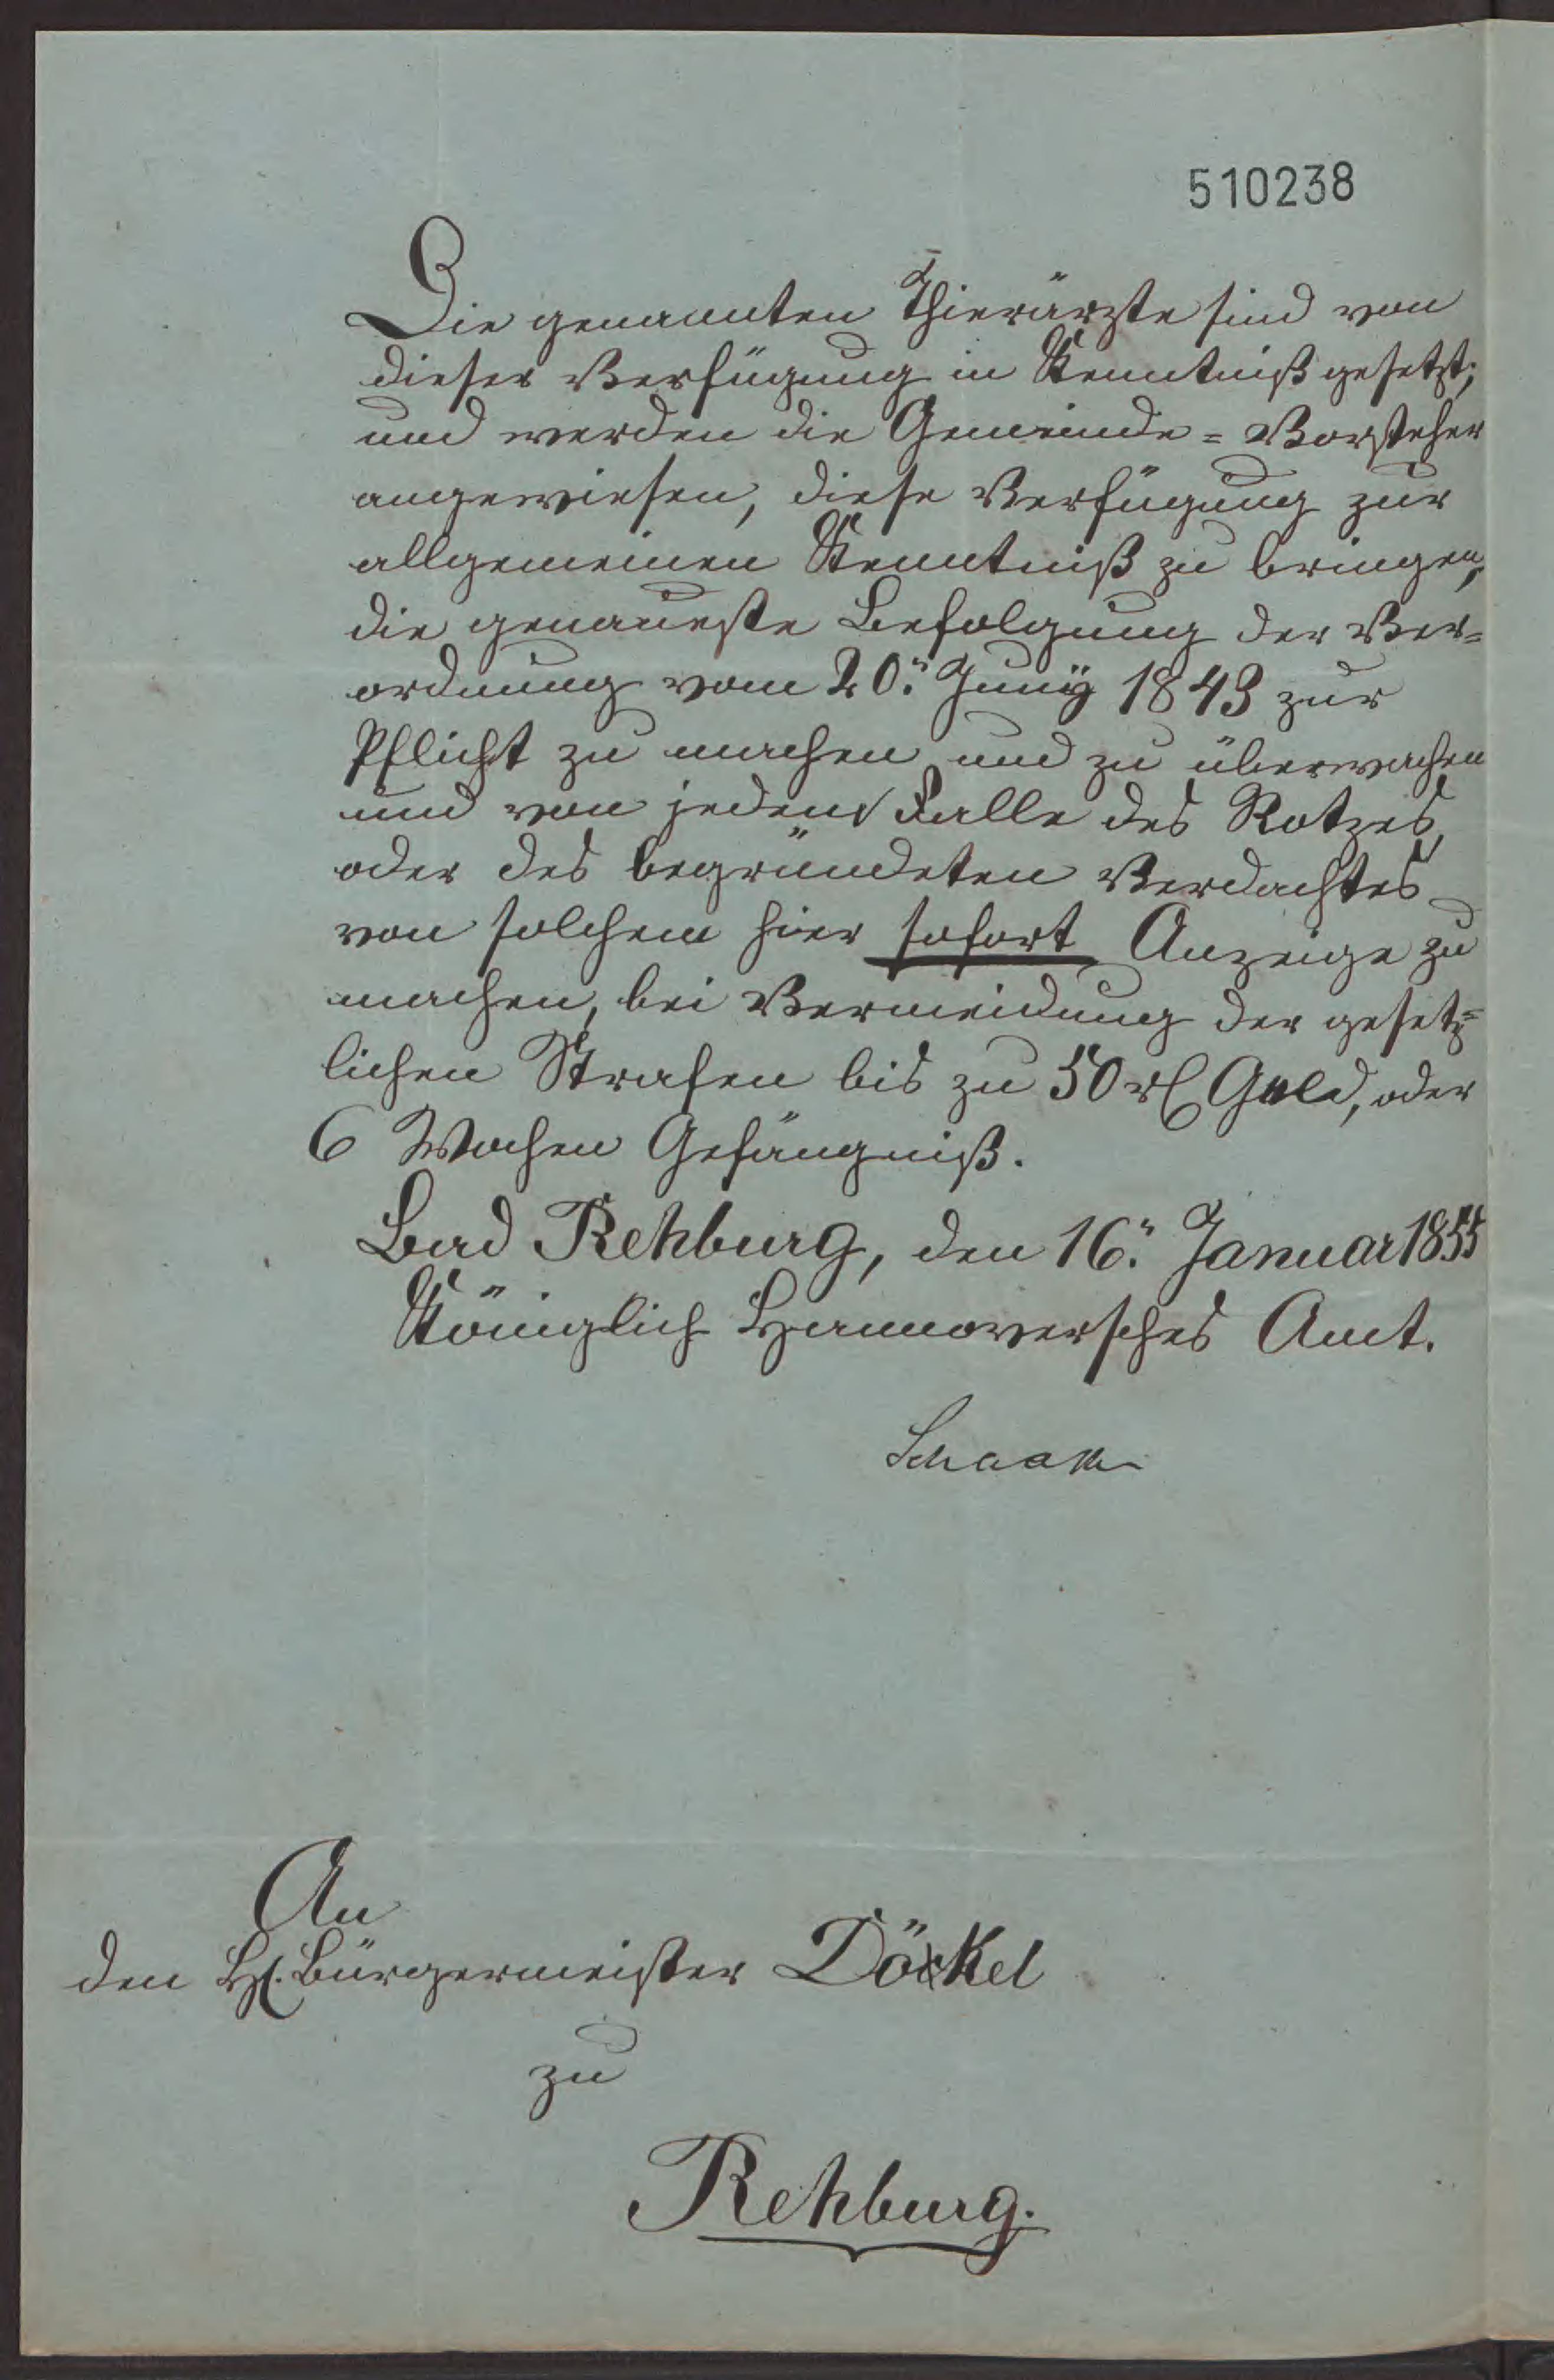 510238
Die genannten Thierärzte sind von
dieser Verfügung in Kenntniß gesetzt;
und werden die Gemeinde=Vorsteher
angewiesen, diese Verfügung zur
allgemeinen Kenntniß zu bringen,
die genaueste Befolgung der Ver=
ordnung vom 20. Juny 1843 zur
Pflicht zu machen und zu überwachen
und von jedem Falle des Rotzes,
oder des begründeten Verdachtes
von solchem hier sofort Anzeige zu
machen, bei Vermeidung der gesetz=
lichen Strafen bis zu 50 rℓ Gold, oder
6 Wochen Gefängniß.
Bad Rehburg, den 16. Januar 1855
Königlich Hannoversches Amt.
An
den H. Bürgermeister Döckel
zu
Rehburg.